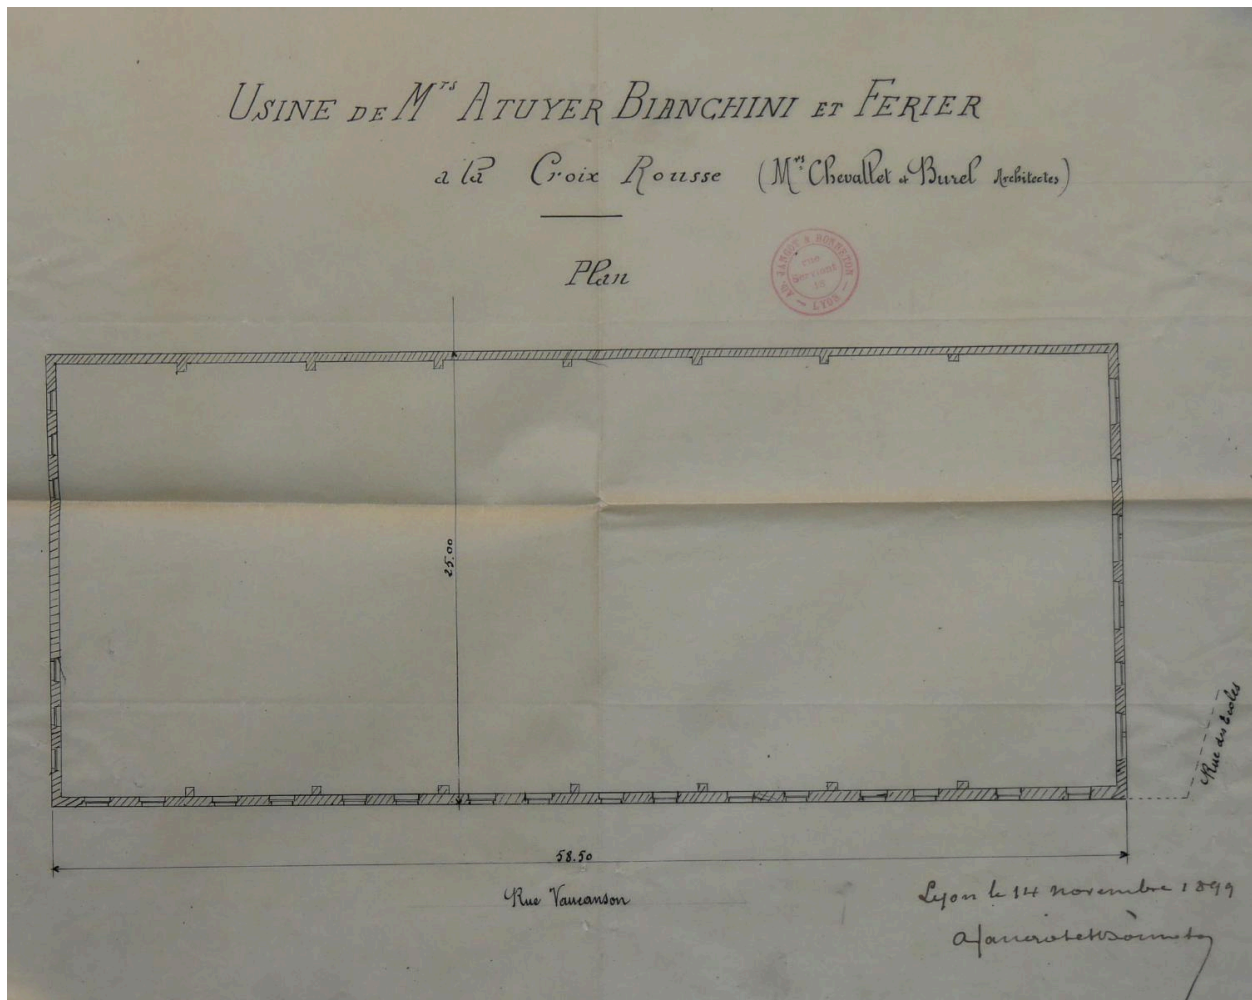 USINE DE Mrs ATUYER BIANCHINI ET FERIER
a la Croix Rousse (Mrs Chevallet et Burel Architectes)
Plan
rue
Servient
LYON
25.00
58.50
Rue Vaucanson
Rue des Ecoles
Lyon le 14 novembre 1899